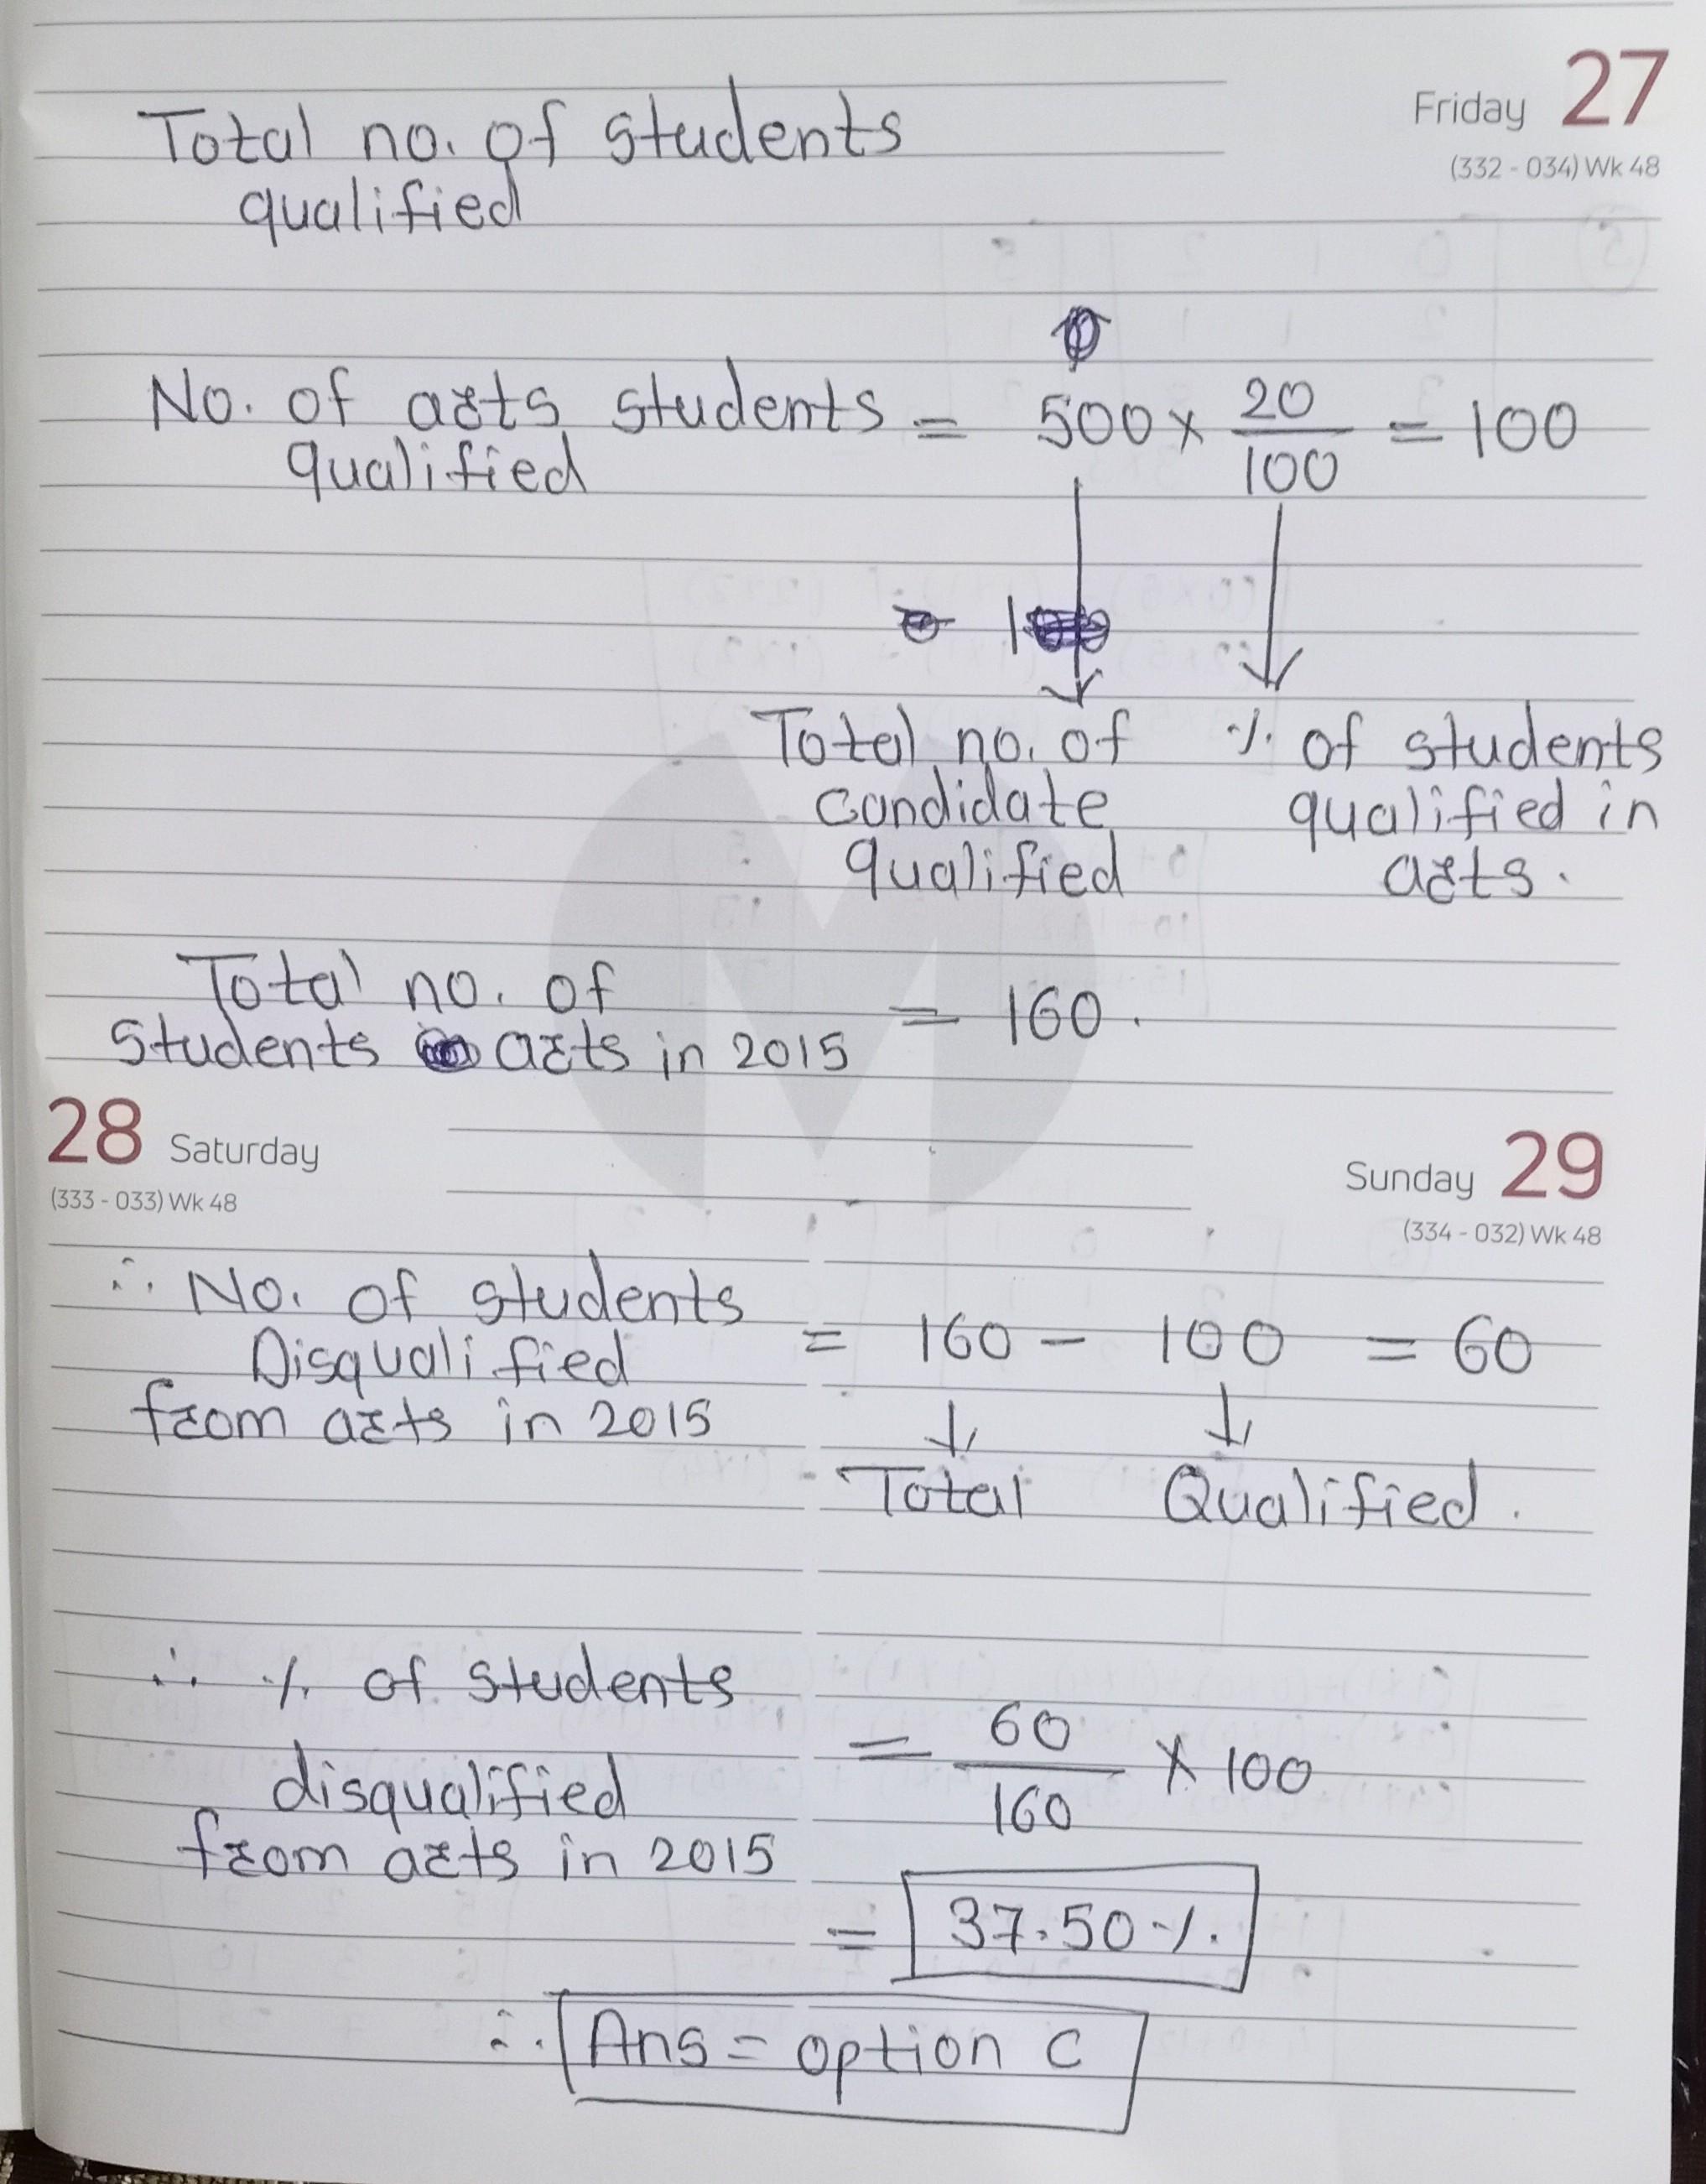 Friday 27
(332 - 034) Wk 48
Total no. of students
qualified
No. of arts students = 500 × 20/100 = 100
qualified
Total no. of
candidate
qualified
% of students
qualified in
arts.
Total no. of
students arts in 2015 = 160.
28 Saturday
(333 - 033) Wk 48
Sunday 29
(334 - 032) Wk 48
∴ No. of students
Disqualified = 160 - 100 = 60
from arts in 2015
Total Qualified.
∴ % of students
disqualified = 60/160 × 100
from arts in 2015
= 37.50 %.
∴ Ans = option C